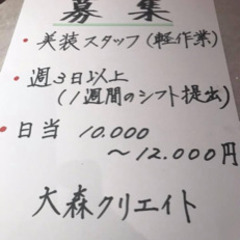 募集
• 美装スタッフ(軽作業)
• 週3日以上
(1週間のシフト提出)
• 日当 10.000
～12.000円
大森クリエイト